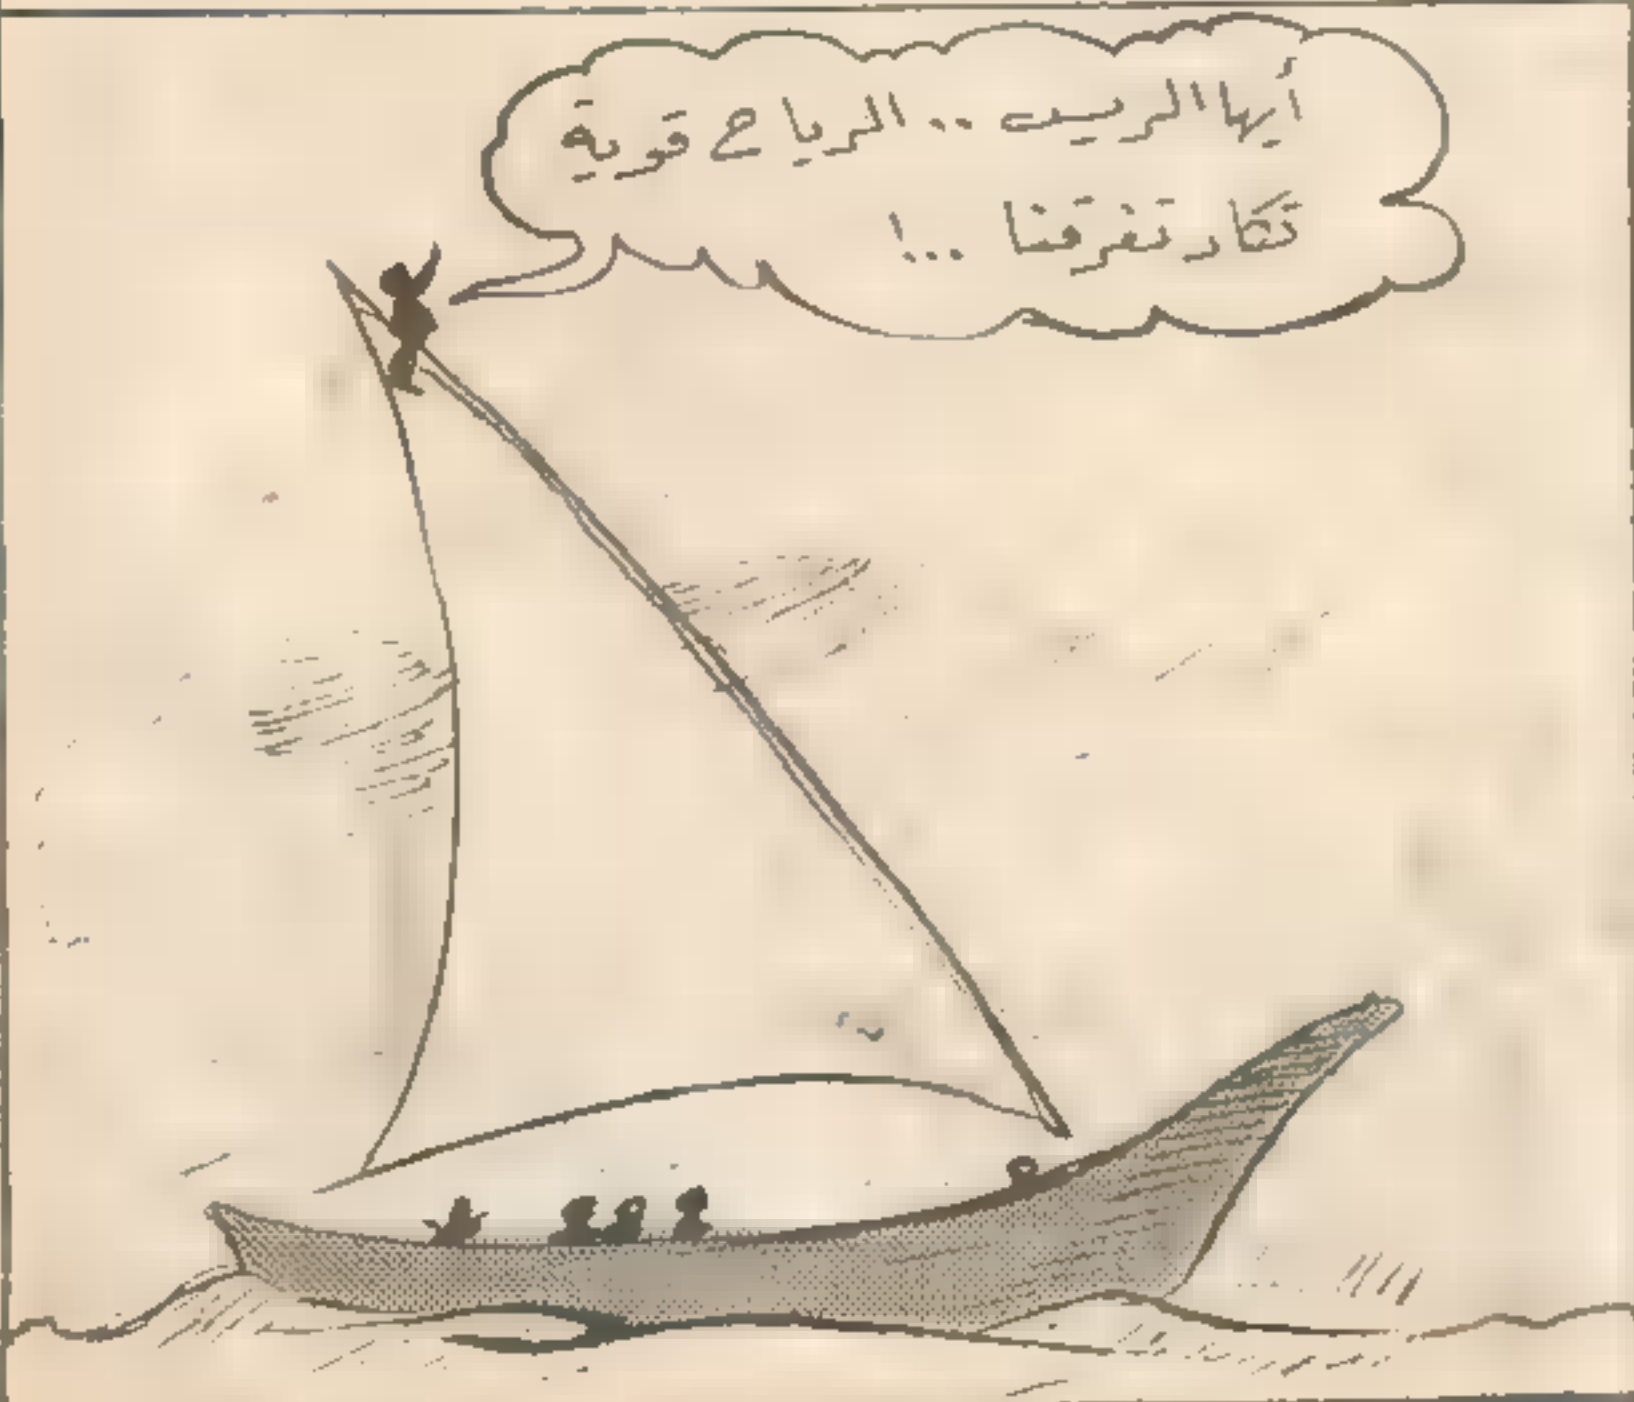 أيها الريس .. الرياح قوية
تكاد تغرقنا ..!